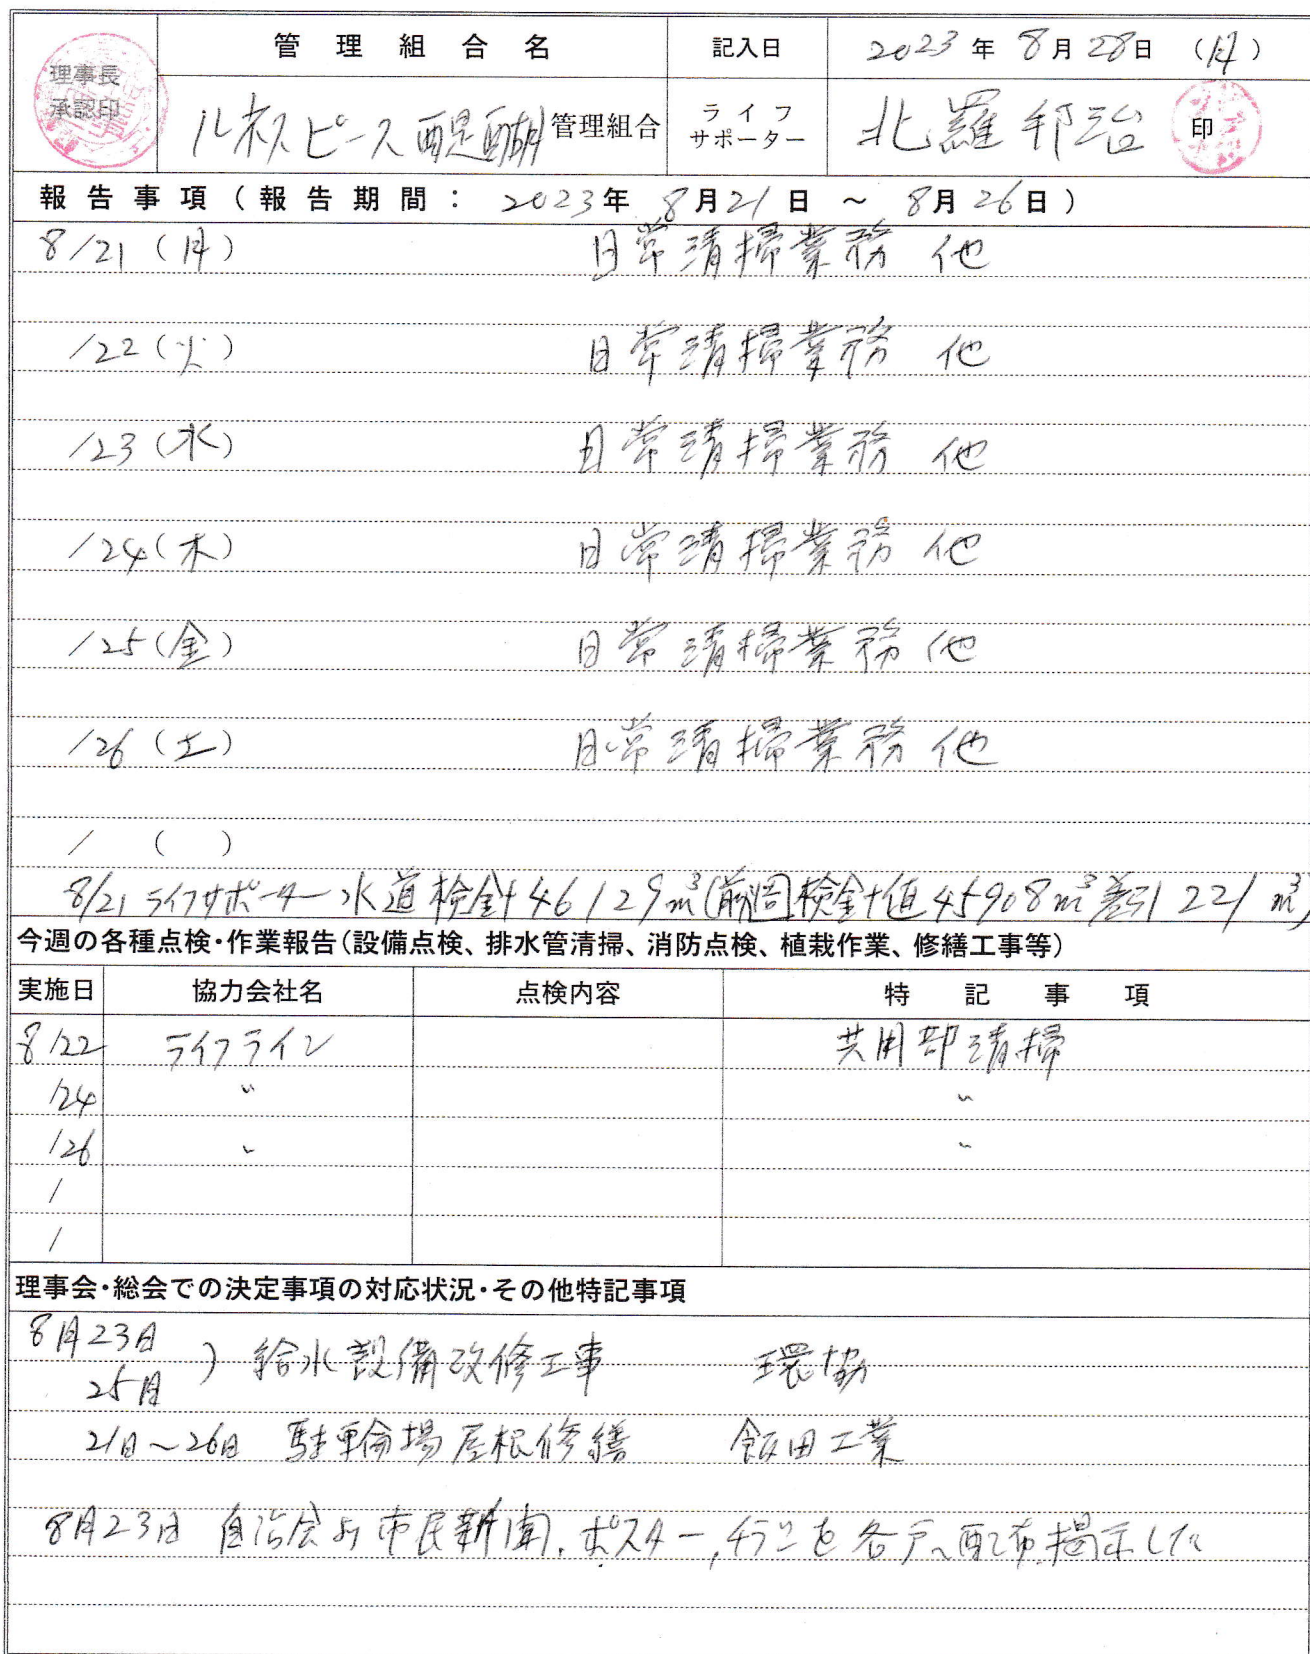 理事長
承認印
管理組合名
記入日
2023年8月28日（月）
ルネスピース醍醐管理組合
ライフ
サポーター
北羅邦治
印
報告事項（報告期間：2023年8月21日～8月26日）
8/21（月） 日常清掃業務 他
/22（火） 日常清掃業務 他
/23（水） 日常清掃業務 他
/24（木） 日常清掃業務 他
/25（金） 日常清掃業務 他
/26（土） 日常清掃業務 他
/ （ ）
8/21 ライフサポーター水道検針46129㎥(前回検針値45908㎥差引221㎥)
今週の各種点検・作業報告（設備点検、排水管清掃、消防点検、植栽作業、修繕工事等）
実施日 協力会社名 点検内容 特記事項
8/22 ライフライン 共用部清掃
/24 〃 〃
/26 〃 〃
/
/
理事会・総会での決定事項の対応状況・その他特記事項
8月23日
25日 ) 給水設備改修工事 環協
21日～26日 駐輪場屋根修繕 飯田工業
8月23日 自治会より市民新聞、ポスター、チラシを各戸へ配布、掲示した